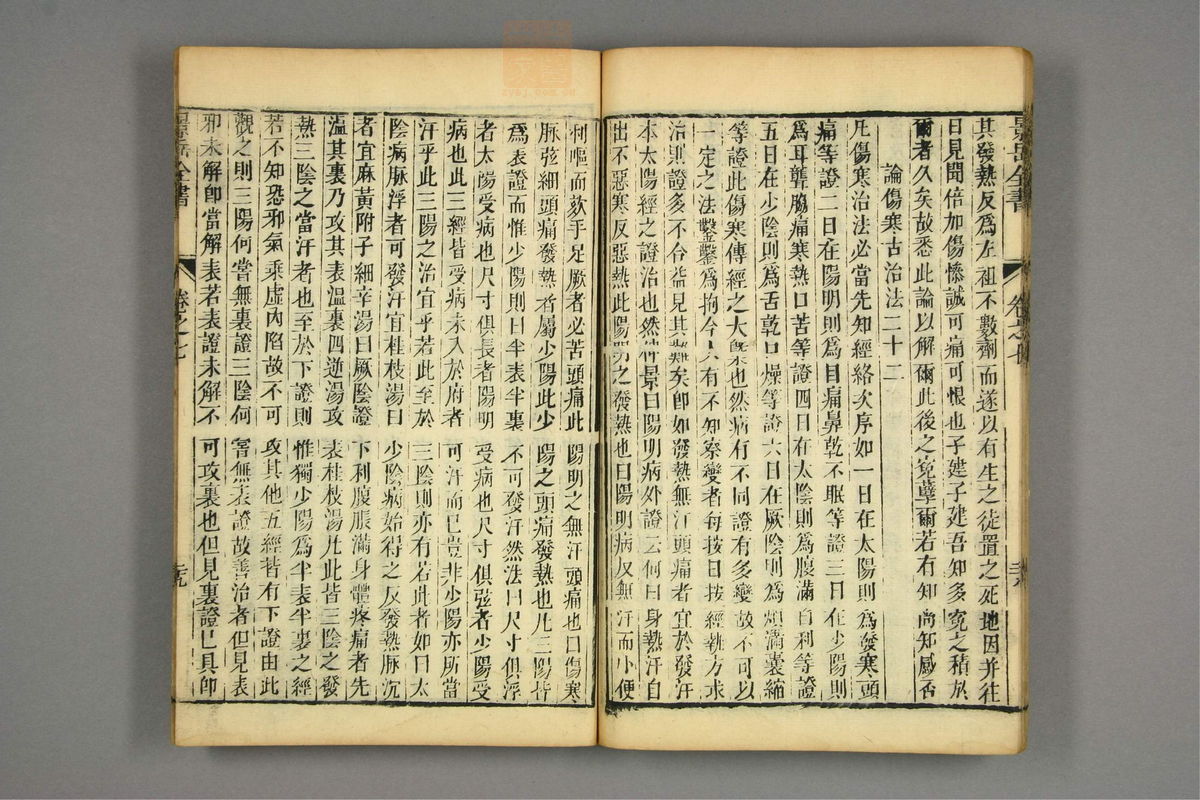 景岳全書
卷之七
其發熱反為左祖不數劑而遂以有生之徒置之死地因并往
日見聞倍加傷慘誠可痛可恨也子建子建吾知多寃之積於
爾者久矣故悉此論以解爾此後之寃孽爾若有知尚知感否
論傷寒古治法二十二
凡傷寒治法必當先知經絡次序如一日在太陽則為發寒頭
痛等證二日在陽明則為目痛鼻乾不眠等證三日在少陽則
為耳聾脇痛寒熱口苦等證四日在太陰則為腹滿自利等證
五日在少陰則為舌乾口燥等證六日在厥陰則為煩滿囊縮
等證此傷寒傳經之大槩也然病有不同證有多變故不可以
一定之法鑿鑿為拘今人有不知察變者每按日按經執方求
治則證多不合益見其難矣即如發熱無汗頭痛者宜於發汗
本太陽經之證治也然仲景曰陽明病外證云何曰身熱汗自
出不惡寒反惡熱此陽明之發熱也曰陽明病反無汗而小便
利嘔而欬手足厥者必苦頭痛此陽明之無汗頭痛也曰傷寒
脉弦細頭痛發熱者屬少陽此少陽之頭痛發熱也凡三陽皆
為表證而惟少陽則曰半表半裏不可發汗然法曰尺寸俱浮
者太陽受病也尺寸俱長者陽明受病也尺寸俱弦者少陽受
病也此三經皆受病未入於府者可汗而已豈非少陽亦所當
汗乎此三陽之治宜乎若此至於三陰則亦有若此者如曰太
陰病脉浮者可發汗宜桂枝湯曰少陰病始得之反發熱脉沉
者宜麻黃附子細辛湯曰厥陰證下利腹脹滿身體疼痛者先
溫其裏乃攻其表溫裏四逆湯攻表桂枝湯凡此皆三陰之發
熱三陰之當汗者也至於下證則惟獨少陽為半表半裏之經
若不知恐邪氣乘虛內陷故不可攻其他五經皆有下證由此
觀之則三陽何嘗無裏證三陰何嘗無表證故善治者但見表
邪未解即當解表若表證未解不可攻裏也但見裏證已具即
景岳全書
卷之七